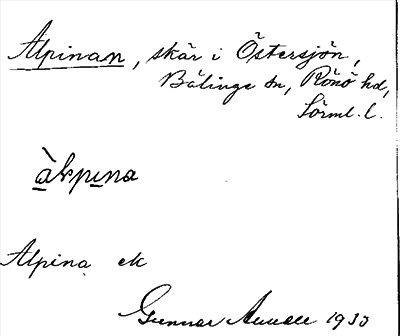 Alpinan, skär i Östersjön,
Bälinge sn, Rönö hd,
Sörml. l.
àlpina
Alpina ek
Gunnar 1933